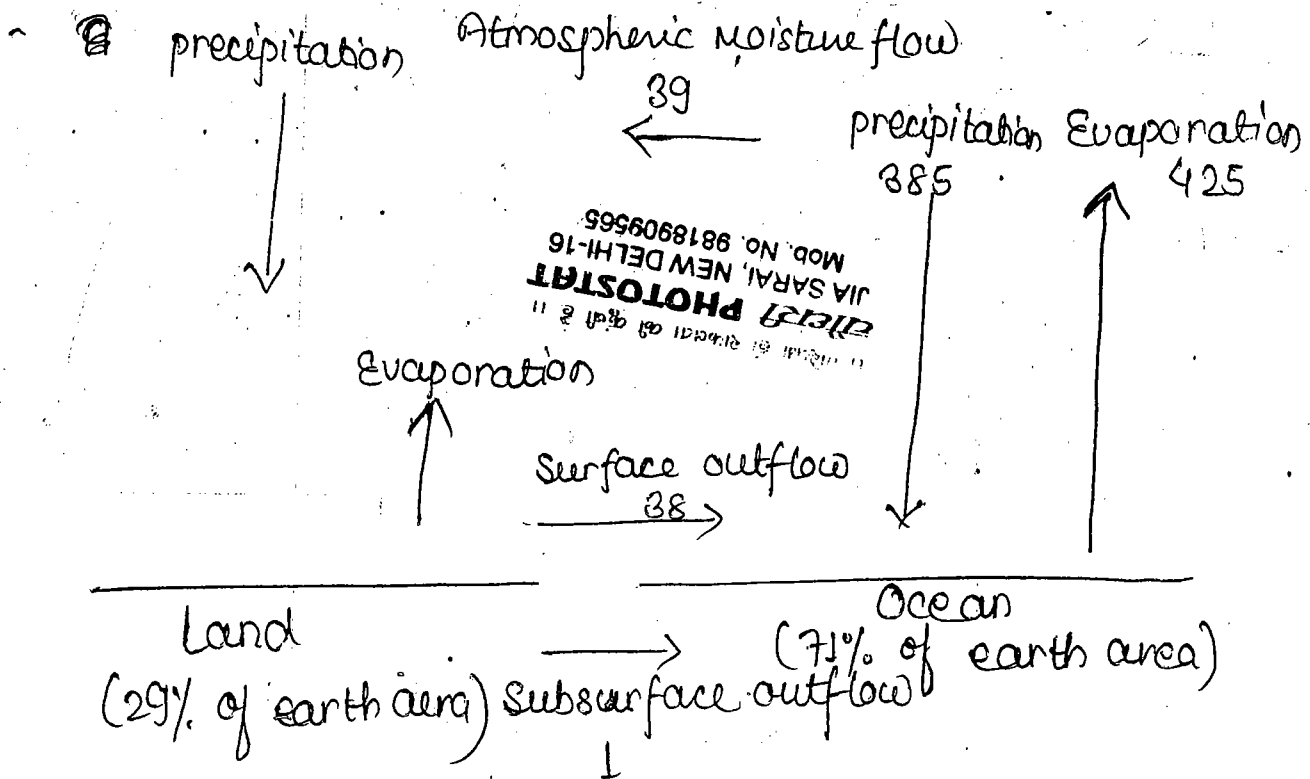 precipitation Atmospheric Moisture flow
39
precipitation Evaporation
385 425
PHOTOSTAT
JIA SARAI, NEW DELHI-16
Mob. No. 9818909565
Evaporation
Surface outflow
38
Land Ocean
(71% of earth area)
(29% of earth aera) Subsurface outflow
1